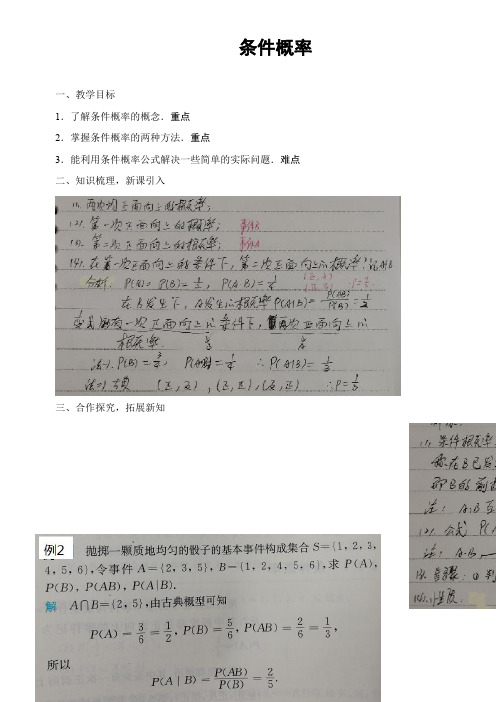 条件概率
一、教学目标
1．了解条件概率的概念．重点
2．掌握条件概率的两种方法．重点
3．能利用条件概率公式解决一些简单的实际问题．难点
二、知识梳理，新课引入
(1). 两次均正面向上的概率;
(2). 第一次正面向上的概率; 事件B
(3). 第二次正面向上的概率; 事件A
(4). 在第一次正面向上的条件下, 第二次正面向上的概率
分析. P(A)=P(B)=1/2, P(A·B)=1/4
在B发生下, A发生的概率P(A|B)=P(AB)/P(B)=1/2
有一次正面向上的条件下, 两次正面向上的
概率.
法一). P(B)=3/4, P(AB)=1/4 ∴P(A|B)=1/3
法二) (正,反), (正,正), (反,正) ∴P=1/3
三、合作探究，拓展新知
(1). 条件概率
称在B已发
注: A,B互
(2). 公式 P(A
注: A·B
(3). 步骤: ① 判
(4). 性质
例2 抛掷一颗质地均匀的骰子的基本事件构成集合 S={1, 2, 3,
4, 5, 6},令事件 A={2, 3, 5}, B={1, 2, 4, 5, 6},求 P(A),
P(B), P(AB), P(A|B).
解 A∩B={2, 5},由古典概型可知
P(A)=3/6=1/2, P(B)=5/6, P(AB)=2/6=1/3,
所以
P(A|B)=P(AB)/P(B)=2/5.